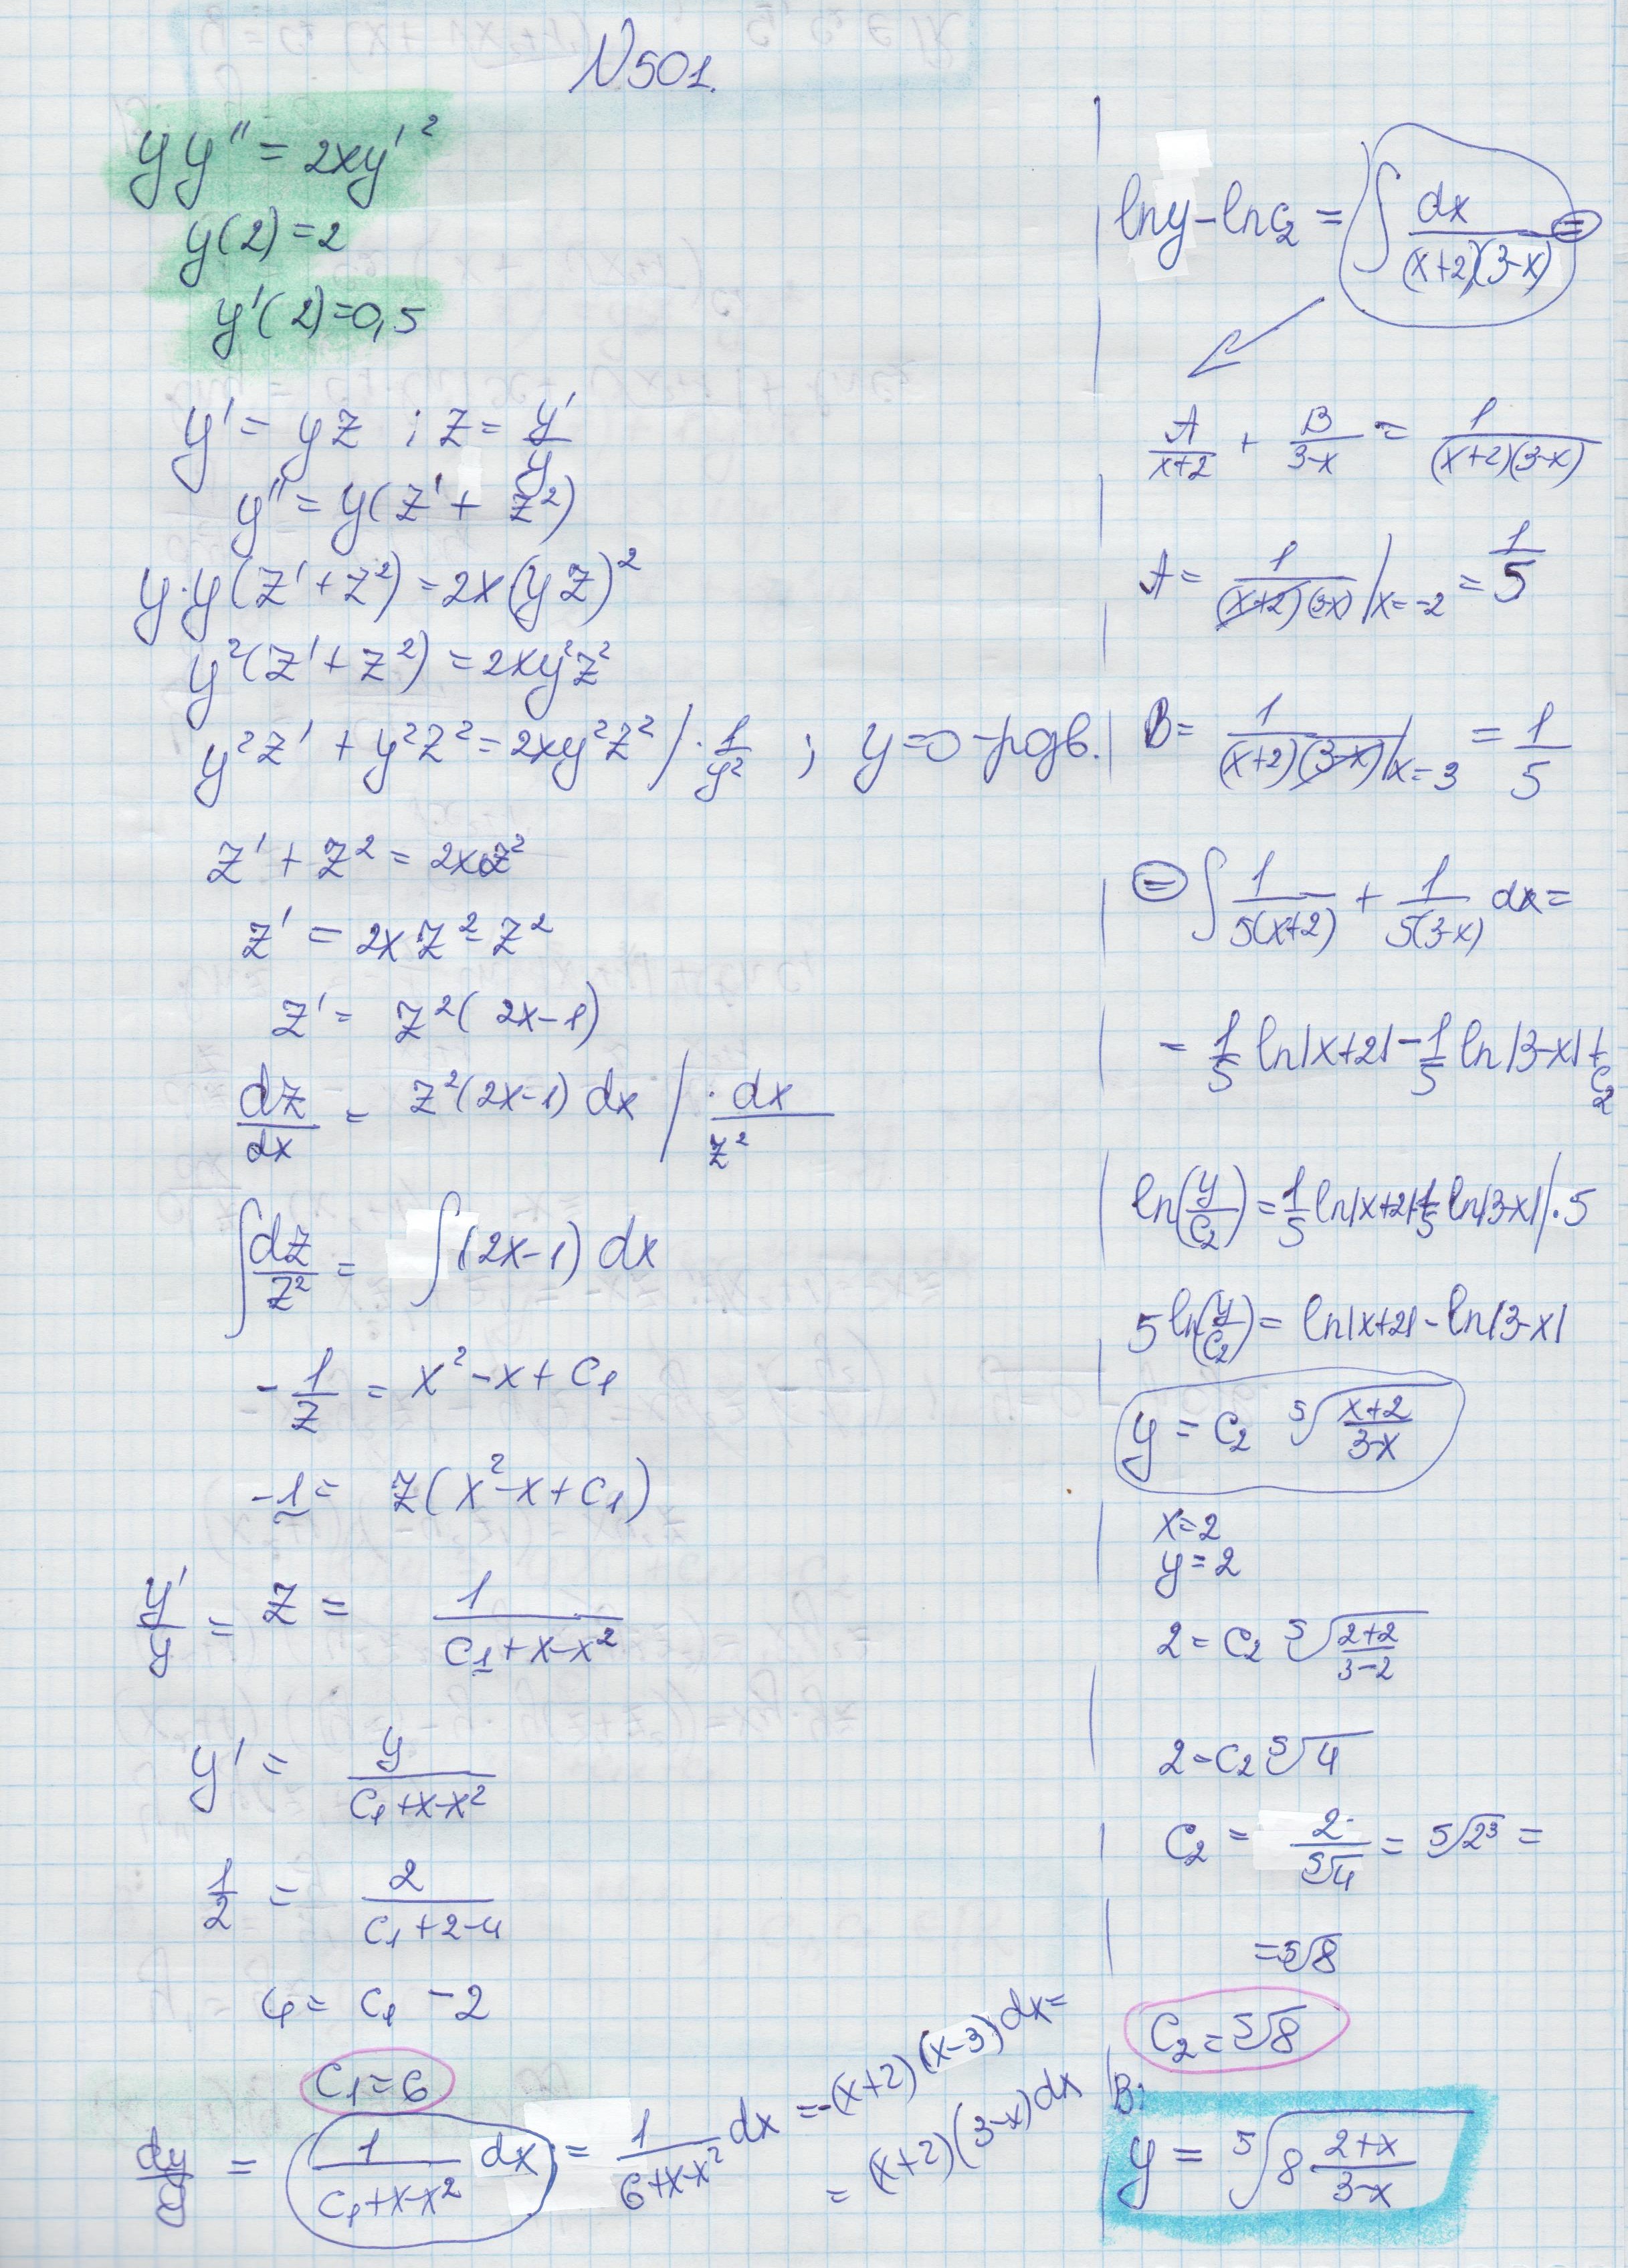 N501.
yy'' = 2xy'²
y(2)=2
y'(2)=0,5
y' = yz ; z = y'/y
y'' = y(z' + z²)
y·y(z'+z²) = 2x(yz)²
y²(z'+z²) = 2xy²z²
y²z' + y²z² = 2xy²z² / · 1/y² ; y=0 -
z' + z² = 2xz²
z' = 2xz² - z²
z' = z²(2x-1)
dz/dx = z²(2x-1) dx / · dx/z²
∫dz/z² = ∫(2x-1) dx
-1/z = x²-x+C₁
-1 = z(x²-x+C₁)
y'/y = z = 1/(C₁+x-x²)
y' = y/(C₁+x-x²)
1/2 = 2/(C₁+2-4)
4 = C₁ -2
C₁=6
= 1/(C₁+x-x²) dx = 1/(6+x-x²) dx = -(x+2)(x-3)dx=
= (x+2)(3-x)dx
lny-lnC₂ = ∫ dx/((x+2)(3-x)) =
A/(x+2) + B/(3-x) = 1/((x+2)(3-x))
A = 1/((x+2)(3-x)) /x=-2 = 1/5
B = 1/((x+2)(3-x)) /x=3 = 1/5
= ∫ 1/(5(x+2)) + 1/(5(3-x)) dx =
= 1/5 ln|x+2| - 1/5 ln|3-x| + C₂
ln(y/C₂) = 1/5 ln|x+2| - 1/5 ln|3-x| /·5
5 ln(y/C₂) = ln|x+2| - ln|3-x|
y = C₂ ⁵√((x+2)/(3-x))
x=2
y=2
2 = C₂ ⁵√((2+2)/(3-2))
2 = C₂ ⁵√4
C₂ = 2/⁵√4 = ⁵√2³ =
= ⁵√8
C₂ = ⁵√8
В:
y = ⁵√(8 (2+x)/(3-x))